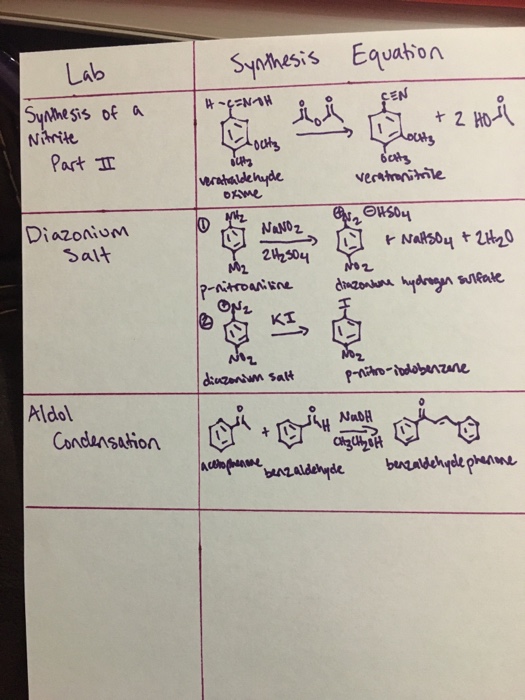 Lab
Synthesis Equation
Synthesis of a
Nitrite
Part II
H-C=N-OH
OCH3
OCH3
veratraldehyde
oxime
C≡N
OCH3
OCH3
veratronitrile
+ 2 HO
Diazonium
Salt
①
NH2
NO2
p-nitroaniline
NaNO2
2H2SO4
⊕N2 ⊖HSO4
NO2
+ NaHSO4 + 2H2O
diazonium hydrogen sulfate
②
⊕N2
NO2
diazonium salt
KI
I
NO2
p-nitro-iodobenzene
Aldol
Condensation
O
acetophenone
+
O
H
benzaldehyde
NaOH
CH3CH2OH
O
benzaldehydephenone